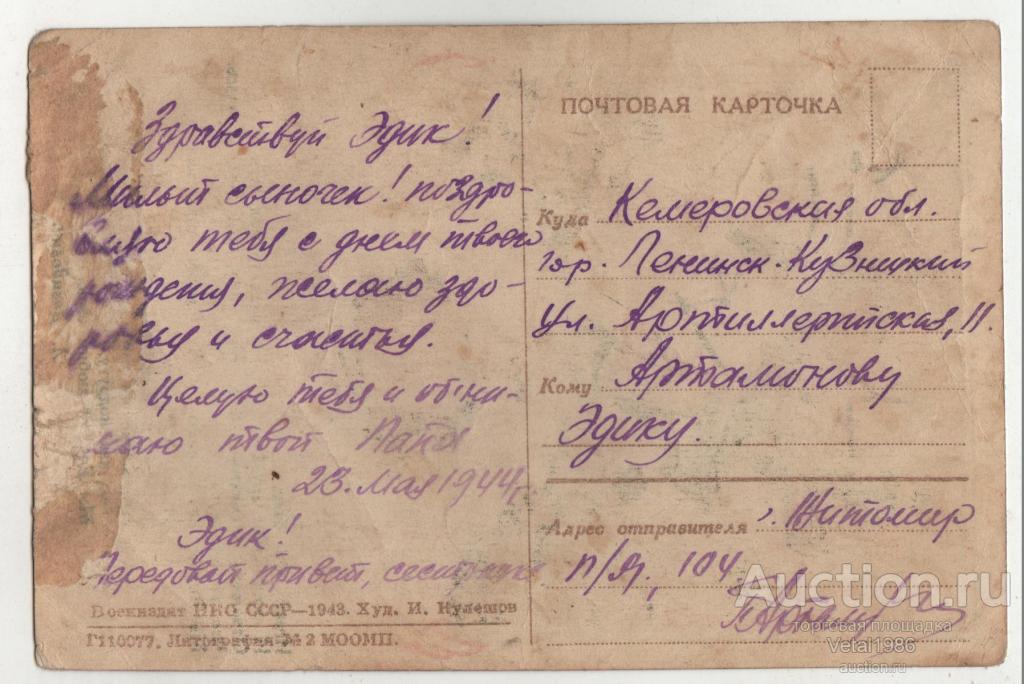 Здравствуй Эдик!
Милый сыночек! поздро-
вляю тебя с днем твоего
рождения, желаю здо-
ровья и счастья.
Целую тебя и обни-
маю твой Папа
23. мая 1944 г.
Эдик!
Передовай привет, сестричке
Воениздат НКО СССР—1943. Худ. И. Кулешов
Г110077. Литография № 2 МООМП.
ПОЧТОВАЯ КАРТОЧКА
Куда Кемеровская обл.
гор. Ленинск-Кузницкий
ул. Артиллерийская, 11.
Кому Артамонову
Эдику.
Адрес отправителя г. Житомир
п/я, 104
Auction.ru
торговая площадка
Vetal1986
auction.ru